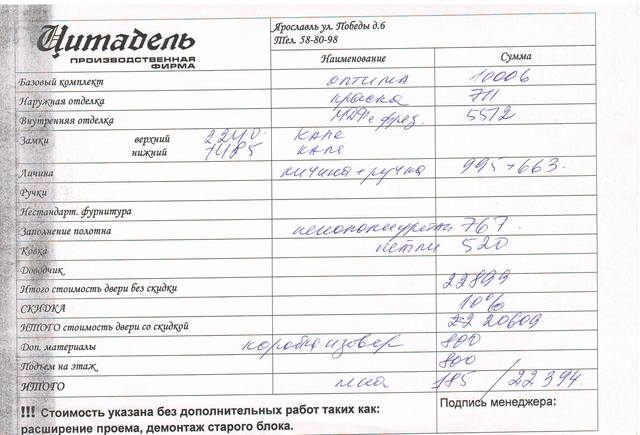 Цитадель
ПРОИЗВОДСТВЕННАЯ
ФИРМА
Ярославль ул. Победы д.6
Тел. 58-80-98
Наименование Сумма
Базовый комплект оптима 10006
Наружная отделка краска 711
Внутренняя отделка МДФ с фрез. 5512
Замки верхний 2240. КАЛЕ
нижний 1485 КАЛЕ
Личина личина + ручка 995+663.
Ручки
Нестандарт. фурнитура
Заполнение полотна пенополиуретан 767
Ковка петли 520
Доводчик
Итого стоимость двери без скидки 22899
СКИДКА 10%
ИТОГО стоимость двери со скидкой 22 20609
Доп. материалы коробка изовер 800
Подъем на этаж 800
ИТОГО 185 / 22 394.
!!! Стоимость указана без дополнительных работ таких как:
расширение проема, демонтаж старого блока.
Подпись менеджера: